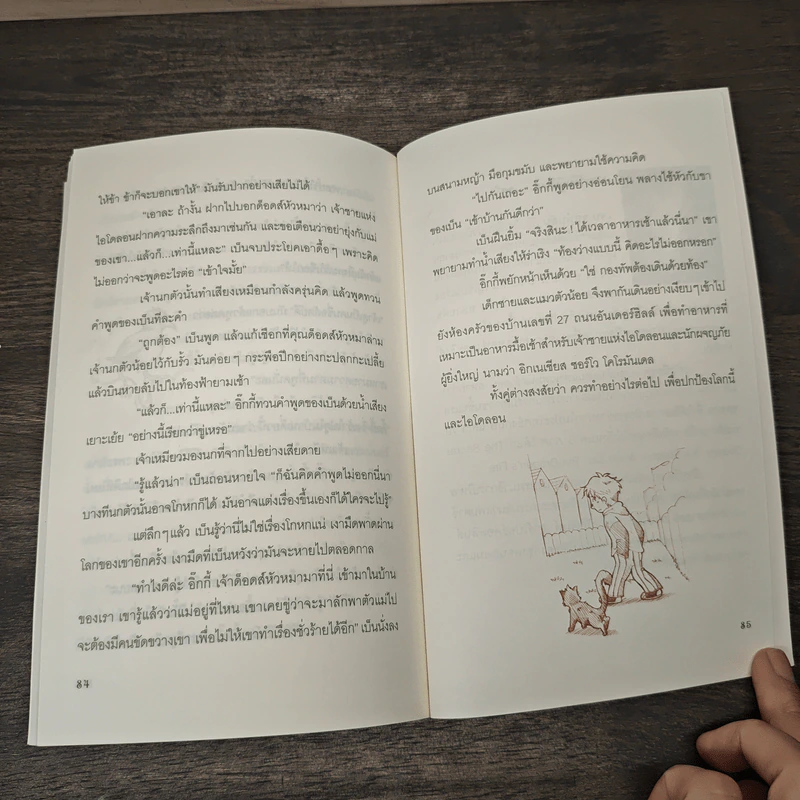 ให้ข้า ข้าก็จะบอกเขาให้" มันรับปากอย่างเสียไม่ได้
"เอาละ ถ้างั้น ฝากไปบอกด็อดส์หัวหมาว่า เจ้าชายแห่ง
ไอโดลอนฝากความระลึกถึงมาเช่นกัน และขอเตือนว่าอย่ายุ่งกับแม่
ของเขา...แล้วก็...เท่านี้แหละ" เป็นจบประโยคเอาดื้อๆ เพราะคิด
ไม่ออกว่าจะพูดอะไรต่อ "เข้าใจมั้ย"
เจ้านกตัวนั้นทำเสียงเหมือนกำลังครุ่นคิด แล้วพูดทวน
คำพูดของเป็นทีละคำ
"ถูกต้อง" เป็นพูด แล้วแก้เชือกที่คุณด็อดส์หัวหมาล่าม
เจ้านกตัวน้อยไว้กับรั้ว มันค่อยๆ กระพือปีกอย่างกะปลกกะเปลี้ย
แล้วบินหายลับไปในท้องฟ้ายามเช้า
"แล้วก็...เท่านี้แหละ" อิ๊กกี้ทวนคำพูดของเป็นด้วยน้ำเสียง
เยาะเย้ย "อย่างนี้เรียกว่าขู่เหรอ"
เจ้าเหมียวมองนกที่จากไปอย่างเสียดาย
"รู้แล้วน่า" เป็นถอนหายใจ "ก็ฉันคิดคำพูดไม่ออกนี่นา
บางทีนกตัวนั้นอาจโกหกก็ได้ มันอาจแต่งเรื่องขึ้นเองก็ได้ใครจะไปรู้"
แต่ลึกๆแล้ว เป็นรู้ว่านี่ไม่ใช่เรื่องโกหกแน่ เงามืดพาดผ่าน
โลกของเขาอีกครั้ง เงามืดที่เป็นหวังว่ามันจะหายไปตลอดกาล
"ทำไงดีล่ะ อิ๊กกี้ เจ้าด็อดส์หัวหมามาที่นี่ เข้ามาในบ้าน
ของเรา เขารู้แล้วว่าแม่อยู่ที่ไหน เขาเคยขู่ว่าจะมาลักพาตัวแม่ไป
จะต้องมีคนขัดขวางเขา เพื่อไม่ให้เขาทำเรื่องชั่วร้ายได้อีก" เป็นนั่งลง
84
บนสนามหญ้า มือกุมขมับ และพยายามใช้ความคิด
"ไปกันเถอะ" อิ๊กกี้พูดอย่างอ่อนโยน พลางใช้หัวกับขา
ของเป็น "เข้าบ้านกันดีกว่า"
เป็นฝืนยิ้ม "จริงสินะ! ได้เวลาอาหารเช้าแล้วนี่นา" เขา
พยายามทำน้ำเสียงให้ร่าเริง "ท้องว่างแบบนี้ คิดอะไรไม่ออกหรอก"
อิ๊กกี้พยักหน้าเห็นด้วย "ใช่ กองทัพต้องเดินด้วยท้อง"
เด็กชายและแมวตัวน้อย จึงพากันเดินอย่างเงียบๆเข้าไป
ยังห้องครัวของบ้านเลขที่ 27 ถนนอันเดอร์ฮิลล์ เพื่อทำอาหารที่
เหมาะเป็นอาหารมื้อเช้าสำหรับเจ้าชายแห่งไอโดลอนและนักผจญภัย
ผู้ยิ่งใหญ่ นามว่า อิกเนเชียส ซอร์โว โคโรมันเดล
ทั้งคู่ต่างสงสัยว่า ควรทำอย่างไรต่อไป เพื่อปกป้องโลกนี้
และไอโดลอน
85